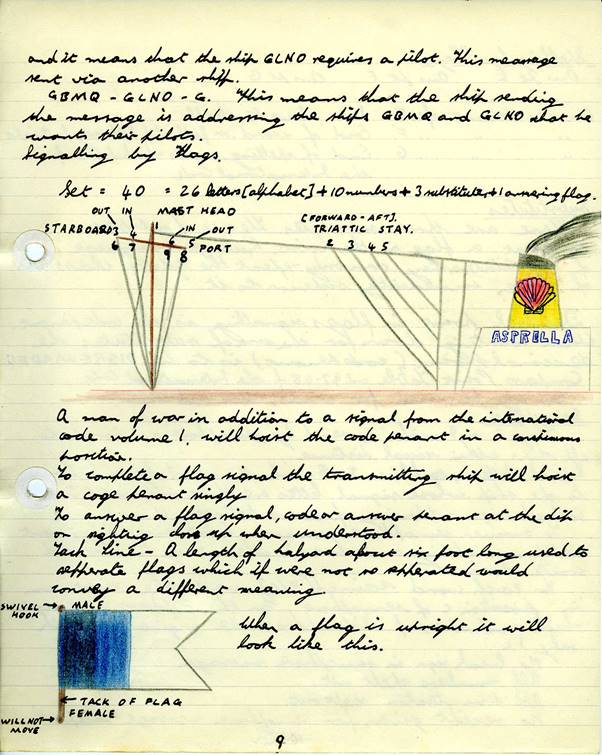 and it means that the ship GLNO requires a pilot. This meassage
sent via another ship.
GBMQ - GLNO - G. This means that the ship sending
the message is addressing the ships GBMQ and GLNO that he
wants their pilots.
Signalling by Flags.
Set = 40 = 26 letters [alphabet] + 10 numbers + 3 substitutes + 1 answering flag.
OUT IN MAST HEAD [FORWARD - AFT].
STARBOARD 3 4 1 6 IN 5 OUT TRIATTIC STAY.
6 7 9 8 PORT 2 3 4 5
ASPRELLA
A man of war in addition to a signal from the international
code volume 1, will hoist the code penant in a
position.
To complete a flag signal the transmitting ship will hoist
a coge penant singly
To answer a flag signal, code or answer penant at the dip
on sighting close up when understood.
Tack line - A length of halyard about six foot long used to
sepperate flags which if were not so sepperated would
convey a different meaning
SWIVEL HOOK → MALE
When a flag is upright it will
look like this.
← TACK OF FLAG
FEMALE
WILL NOT → MOVE
9